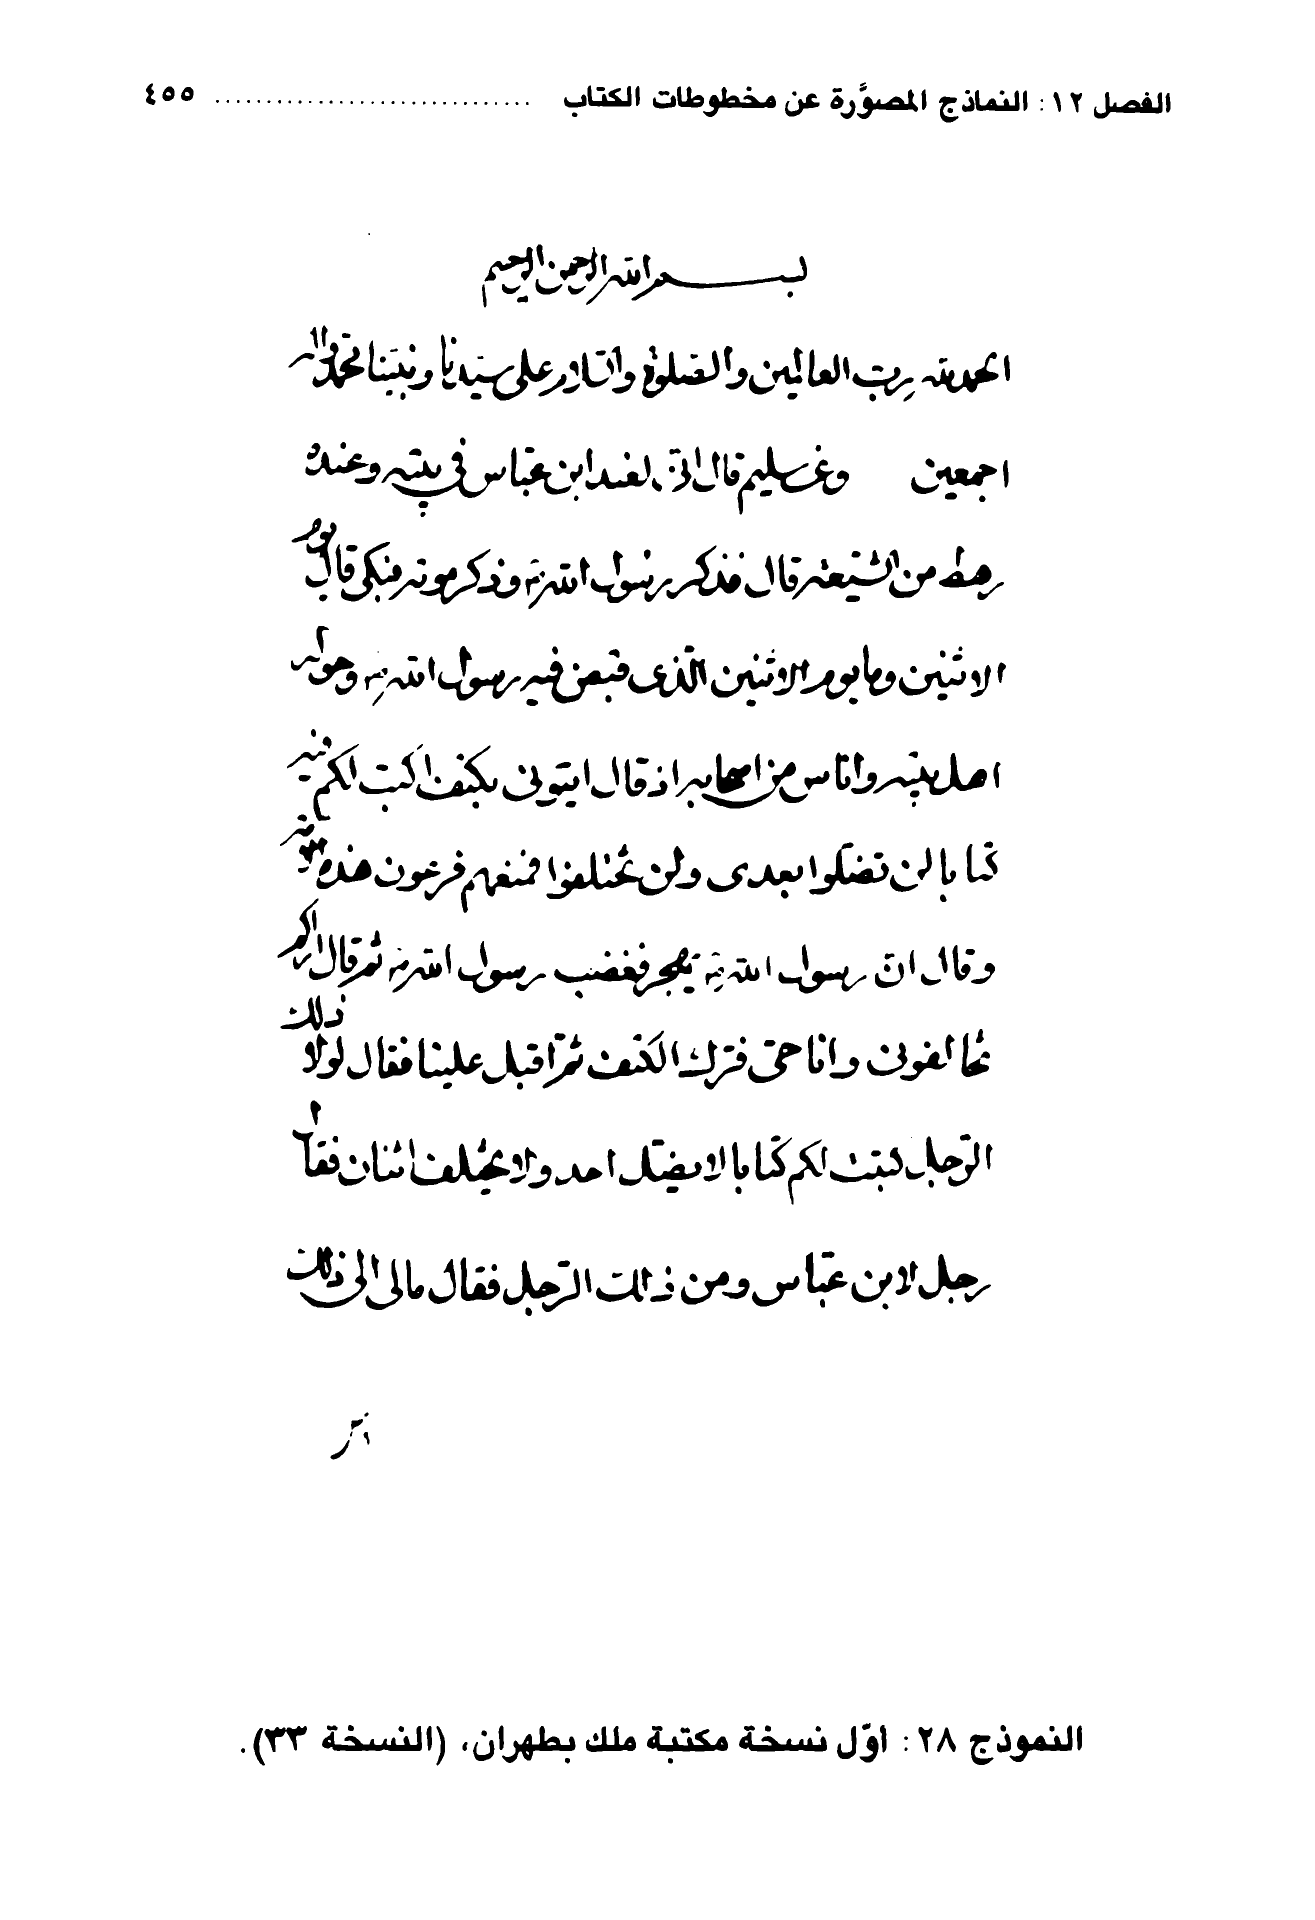 الفصل ١٢: النماذج المصوَّرة عن مخطوطات الكتاب ............................... ٤٥٥
بسم الله الرحمن الرحيم
الحمد لله رب العالمين والصلوة والسلام على سيدنا ونبينا محمد وآله
اجمعين وعن سليم قال انى لعند ابن عباس في بيته وعنده
رهط من الشيعة قال فذكر رسول الله ص وذكر موته فبكى قال يوم
الاثنين وما يوم الاثنين الذى قبض فيه رسول الله ص وحوله
اهل بيته واناس من اصحابه اذ قال ايتونى بكتف اكتب لكم فيه
كتابا لن تضلوا بعدى ولن تختلفوا فمنعهم فرعون هذه
وقال ان رسول الله ص يهجر فغضب رسول الله ص ثم قال اراكم
تخالفونى وانا حى فترك الكتف ثم اقبل علينا فقال لولا ذلك
الرجل لكتبت لكم كتابا لا يضل احد ولا يختلف اثنان فقال
رجل لابن عباس ومن ذلك الرجل فقال مالى الى ذلك
النموذج ٢٨: اوّل نسخة مكتبة ملك بطهران، (النسخة ٣٣).